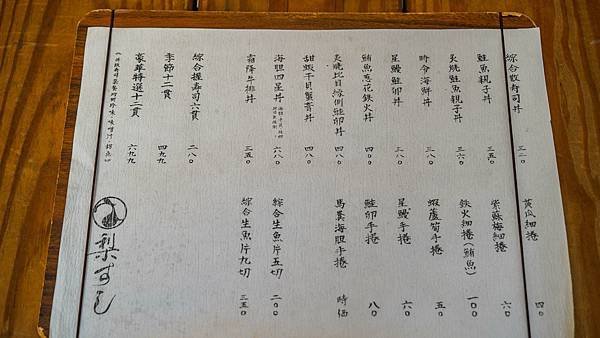 綜合散壽司丼 三二〇
鮭魚親子丼 三五〇
炙燒鮭魚親子丼 三六〇
時令海鮮丼 三八〇
星鰻鮭卵丼 三八〇
鮪魚蔥花鐵火丼 四八〇
炙燒比目緣側鮭卵丼 四八〇
甜蝦干貝蟹膏丼 四八〇
海胆四星丼 六八〇
霜降牛排丼 三五〇
綜合握壽司六貫 二八〇
季節十二貫 四九九
豪華特選十二貫 六九九
黃瓜細捲 四〇
紫蘇梅細捲 六〇
鐵火細捲（鮪魚） 一〇〇
蝦蘆筍手捲 五〇
星鰻手捲 六〇
鮭卵手捲 八〇
馬糞海胆手捲 時価
綜合生魚片五切 二〇〇
綜合生魚片九切 三五〇
梨すし